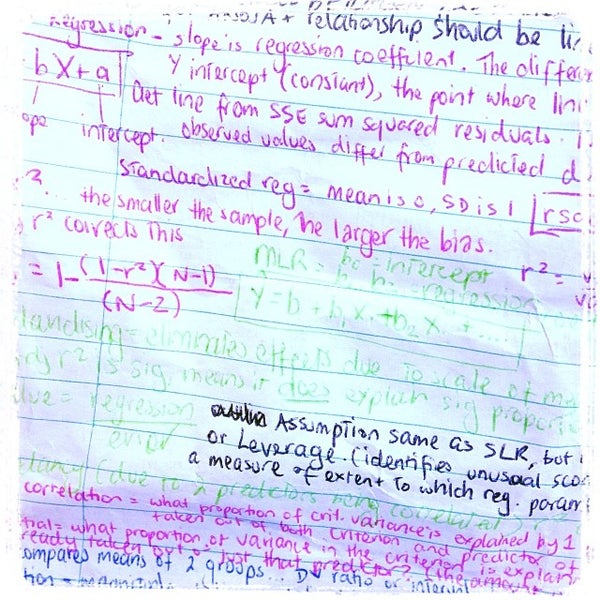 relationship should be lin
Regression - slope is regression coefficient. The differen
bX+a Y intercept (constant), the point where lin
Get line from SSE sum squared residuals.
ope intercept. observed values differ from predicted d
Standardized reg = mean is 0, SD is 1 rsc
... the smaller the sample, the larger the bias.
r² corrects this
MLR = b0 = intercept r² = v
= 1-(1-r²)(N-1) regression
(N-2) Y = b + b1x1 + b2x + ....
landising = elimmies effects due to scale of me
r² is sig, means it does explain sig proporti
lue = regression
error
Assumption same as SLR, but
or Leverage. (identifies unusual sco
a measure of extent to which reg. param
(due to 2 predictors being correlated)
correlation = what proportion of crit. variance is explained by 1
taken out of both criterion and predictor of
tial = what proportion of variance in the criterion is explain
ready taken out of just that predictor?
ompares means of 2 groups... ratio or interval